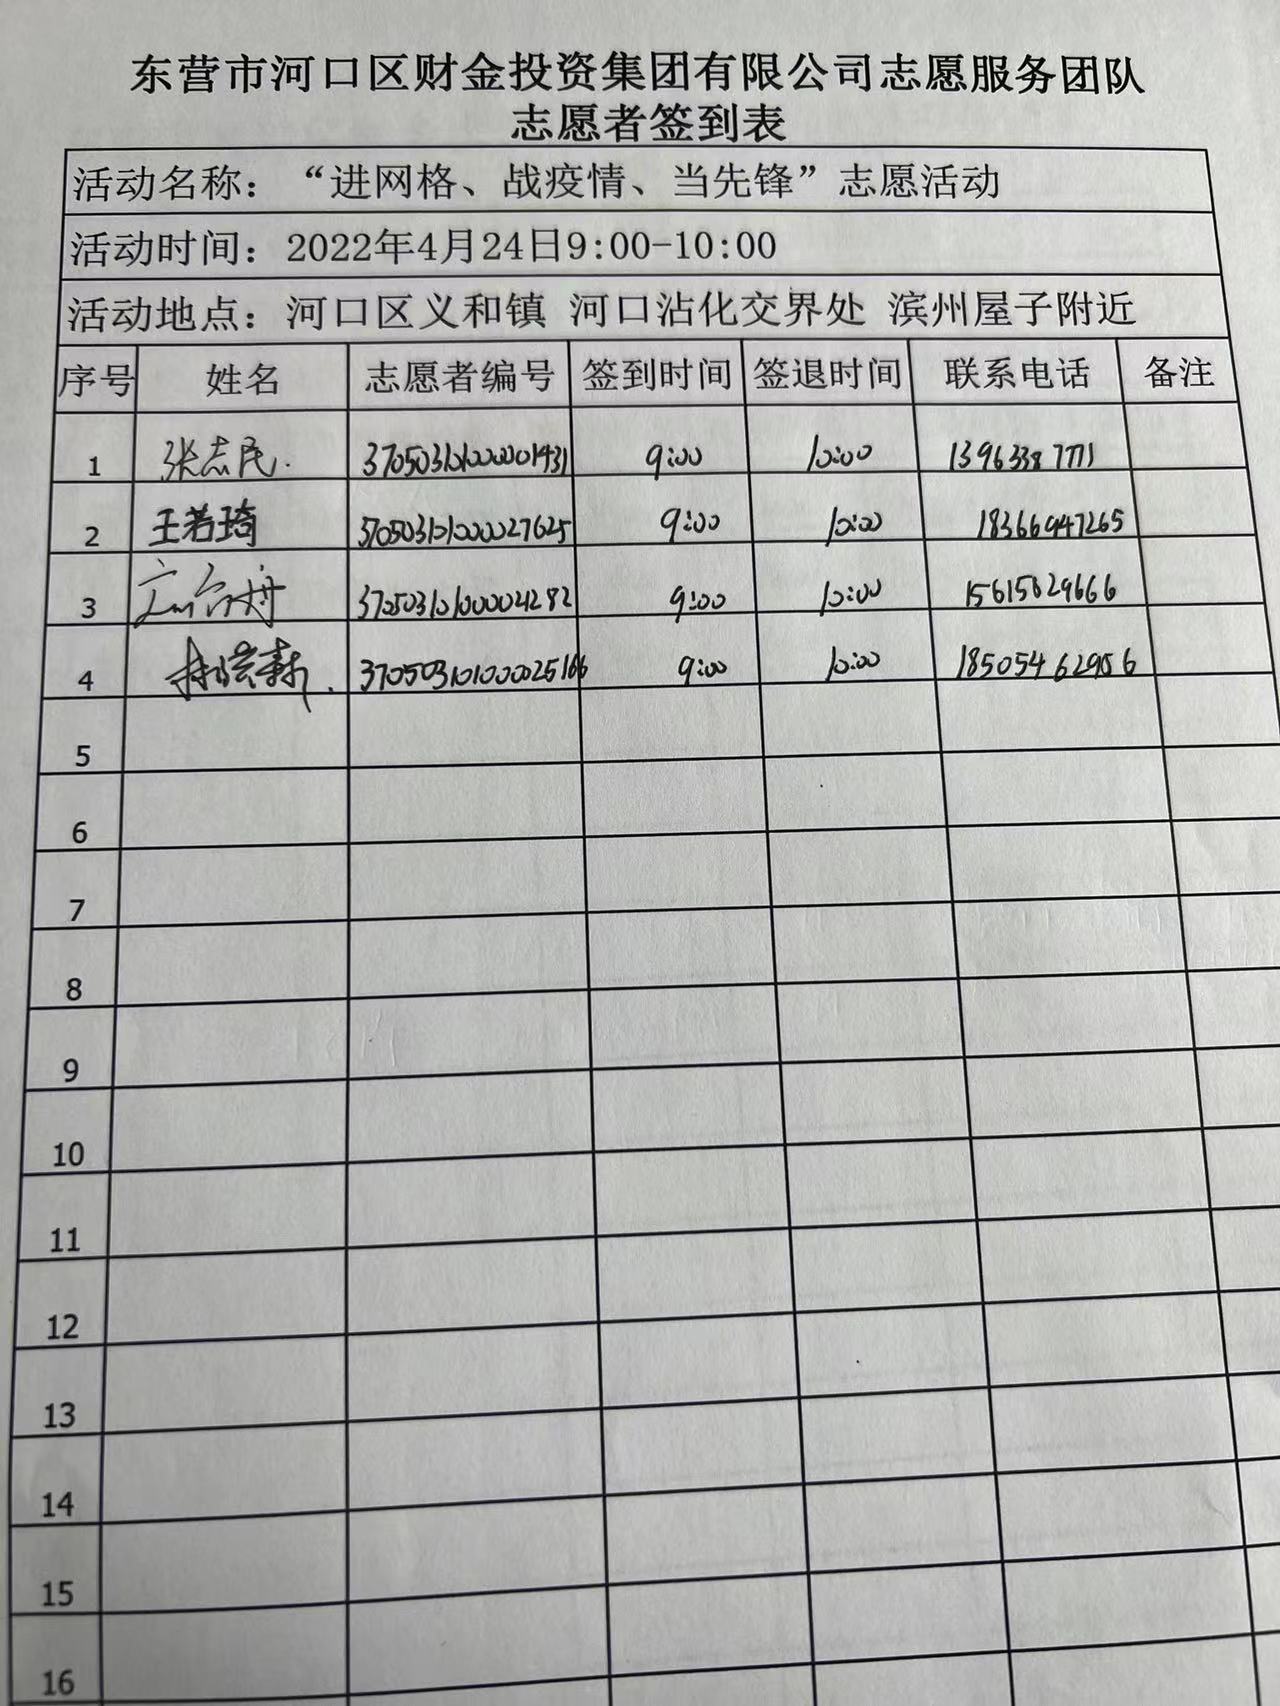 东营市河口区财金投资集团有限公司志愿服务团队
志愿者签到表
活动名称：“进网格、战疫情、当先锋”志愿活动
活动时间：2022年4月24日9:00-10:00
活动地点：河口区义和镇 河口沾化交界处 滨州屋子附近
序号 姓名 志愿者编号 签到时间 签退时间 联系电话 备注
1 张志民 9:00 10:00
2 王若琦 370503101000027625 9:00 10:00 18366947265
3 370503101000004282 9:00 10:00 15615629666
4 370503101000025166 9:00 10:00 18505462956
5
6
7
8
9
10
11
12
13
14
15
16